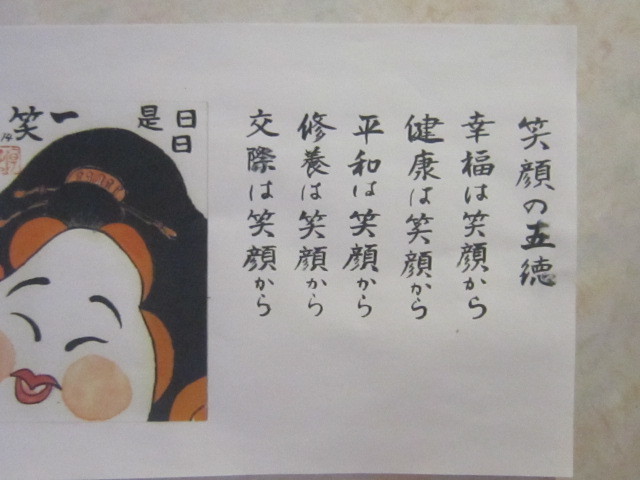 笑顔の五徳
幸福は笑顔から
健康は笑顔から
平和は笑顔から
修養は笑顔から
交際は笑顔から
日日
是
一
笑